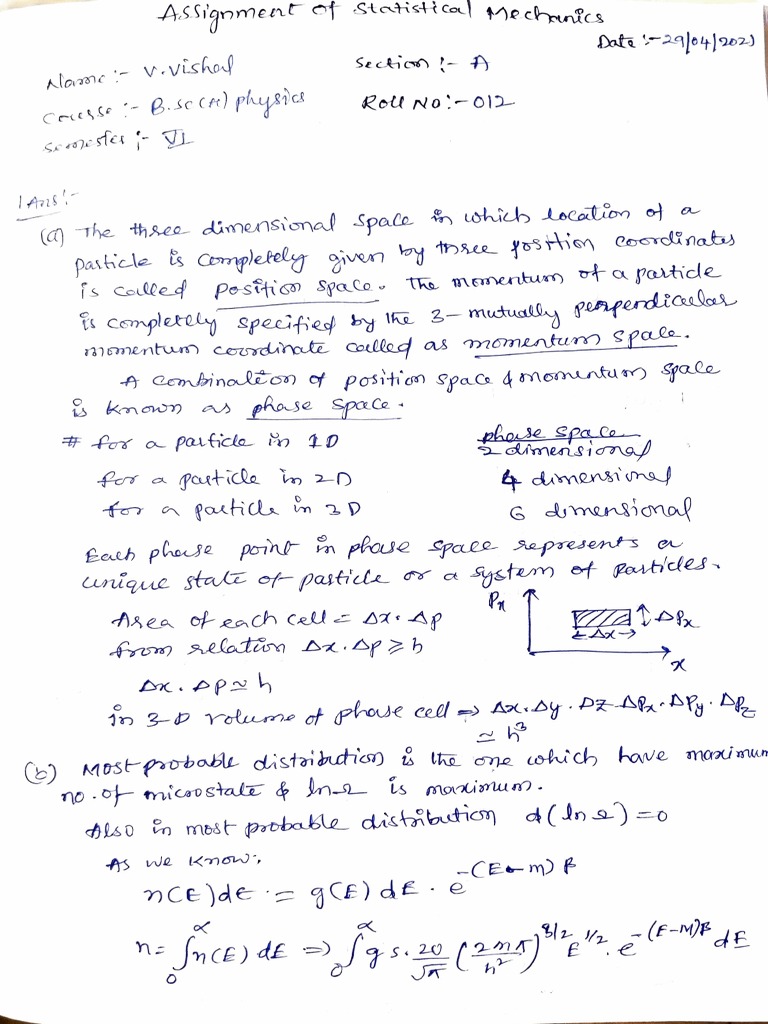 Assignment of Statistical Mechanics
Date :- 29/04/2023
Name :- V. Vishal
Section :- A
Course :- B.sc (H) physics
Roll No :- 012
Semester :- VI
1 Ans :-
(a) The three dimensional space in which location of a
particle is completely given by three position coordinates
is called position space. The momentum of a particle
is completely specified by the 3-mutually perpendicular
momentum coordinate called as momentum space.
A combination of position space & momentum space
is known as phase space.
phase space
# for a particle in 1D 2 dimensional
for a particle in 2D 4 dimensional
for a particle in 3D 6 dimensional
Each phase point in phase space represents a
unique state of particle or a system of particles.
Area of each cell = Δx. Δp
Px
ΔPx
Δx
x
from relation Δx. Δp ≥ h
Δx. Δp ≃ h
in 3-D volume of phase cell => Δx. Δy. Δz ΔPx. ΔPy. ΔPz
≃ h³
(b) Most probable distribution is the one which have maximum
no. of microstate & ln Ω is maximum.
Also in most probable distribution d(ln Ω) = 0
As we know:,
n(E)dE = g(E) dE. e^-(E-M)β
n = ∫₀^∝ n(E) dE => ∫₀^∝ gs. 2v/√π (2mπ/h²)^3/2 E^1/2. e^-(E-M)β dE